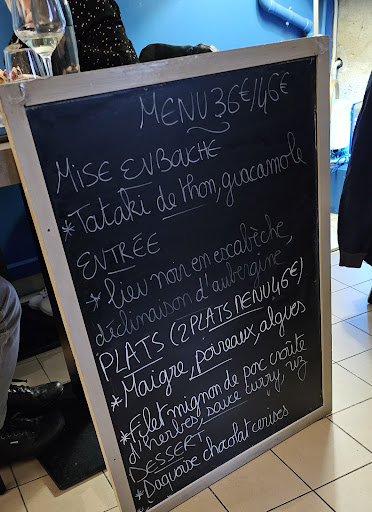 MENU 36€/46€
MISE EN BOUCHE
* Tataki de thon, guacamole
ENTRÉE
* lieu noir en escabèche,
déclinaison d'aubergine
PLATS (2 PLATS MENU 46€)
* Maigre, poireaux, algues
* Filet mignon de porc croûte
d'herbes, sauce curry, riz
DESSERT
* Daquoise chocolat cerises